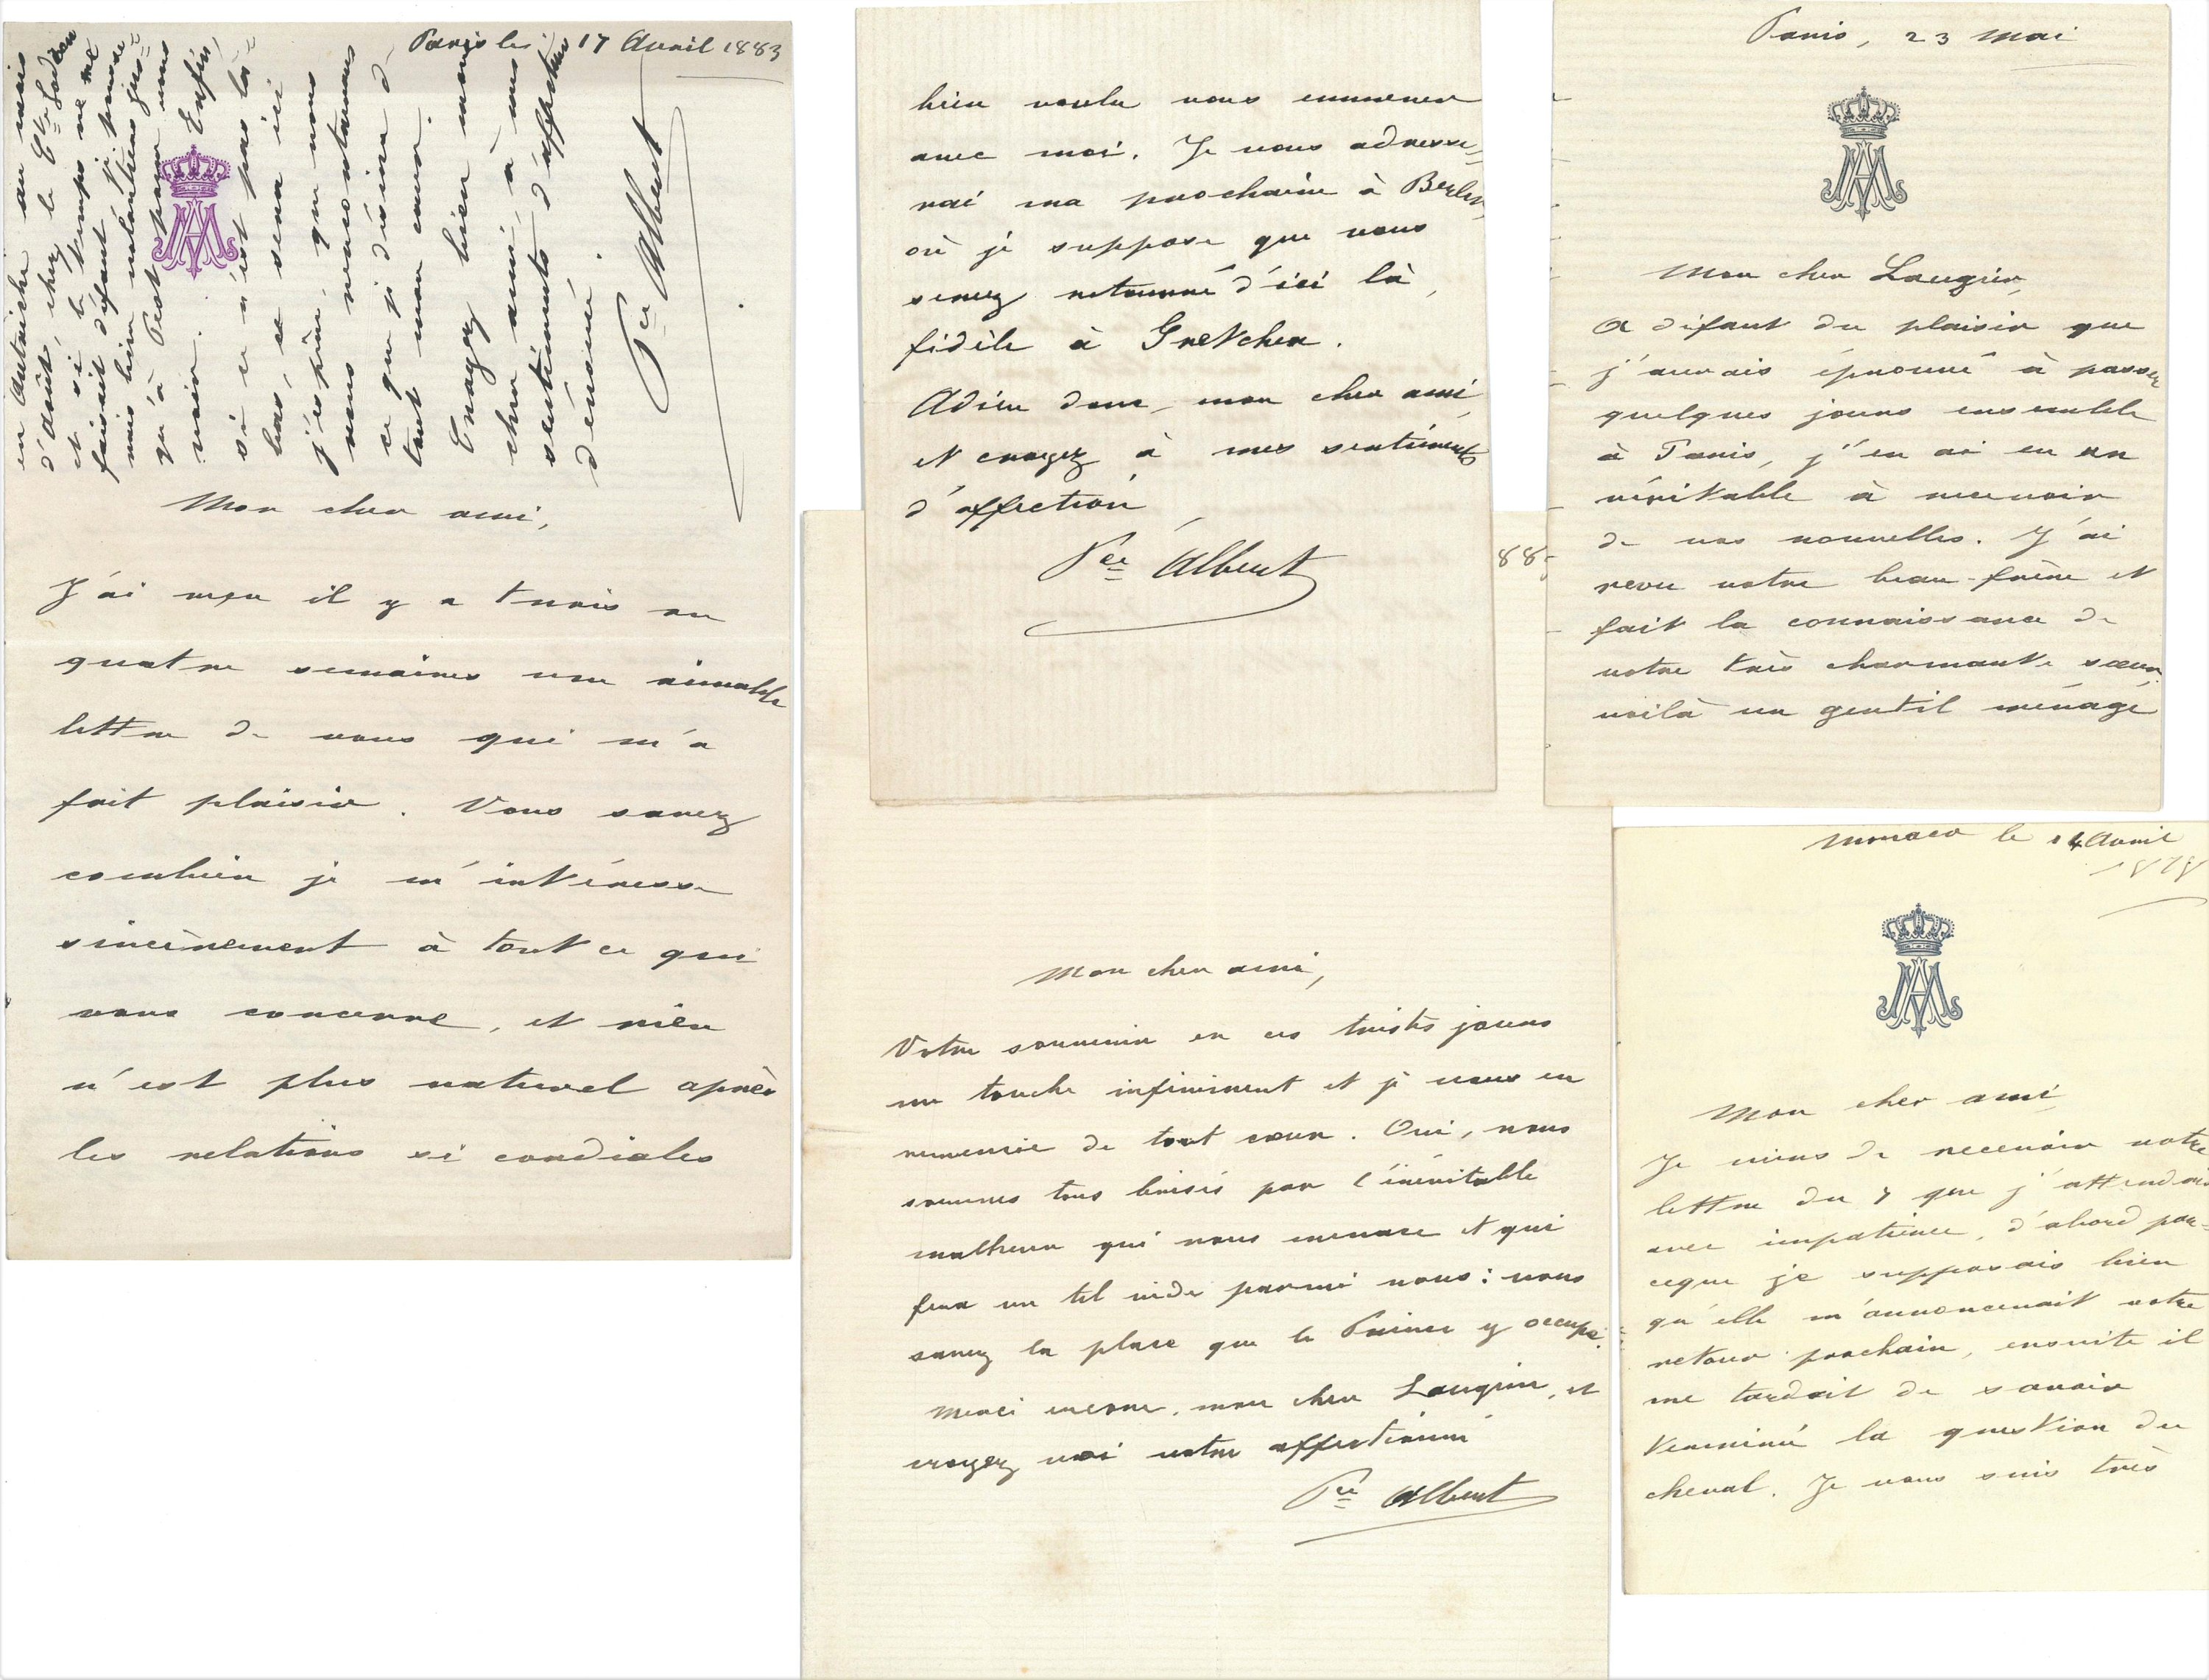 Paris le 17 Avril 1883
Mon cher ami,
J'ai reçu il y a trois ou
quatre semaines une aimable
lettre de vous qui m'a
fait plaisir. Vous savez
combien je m'intéresse
sincèrement à tout ce qui
vous concerne, et rien
n'est plus naturel après
les relations si cordiales
en Autriche au mois
d'août, chez le Cte
et si le temps ne me
faisait défaut j'y
mais bien volontiers jus=
qu'à Pest pour vous
voir. Enfin,
si ce n'est pas là=
bas, ce sera ici
j'espère, que nous
nous rencontrerons
ce que je désire de
tout mon cœur.
Croyez bien mon
cher ami à mes
sentiments d'affection
dévoué.
Pce Albert
bien voulu vous emmener
avec moi. Je vous adresse=
rai ma prochaine à Berlin,
où je suppose que vous
serez retourné d'ici là,
fidèle à Gretchen.
Adieu donc, mon cher ami,
et croyez à mes sentiments
d'affection
Pce Albert
88
Mon cher ami,
Votre souvenir en ces tristes jours
me touche infiniment et je vous en
remercie de tout cœur. Oui, nous
sommes tous brisés par l'inévitable
malheur qui nous menace et qui
fera un tel vide parmi nous: vous
savez la place que le Prince y occupe.
Merci encore, mon cher Laugier, et
croyez moi votre affectionné
Pce Albert
Paris, 23 Mai
Mon cher Laugier,
A défaut du plaisir que
j'aurais éprouvé à passer
quelques jours ensemble
à Paris, j'en ai eu un
véritable à recevoir
de vos nouvelles. J'ai
revu votre beau-frère et
fait la connaissance de
votre très charmante sœur.
voilà un gentil ménage
Monaco le 14 Avril
1878
Mon cher ami,
Je viens de recevoir votre
lettre du 7 que j'attendais
avec impatience, d'abord par=
ceque je supposais bien
qu'elle m'annoncerait votre
retour prochain, ensuite il
me tardait de savoir
terminé la question du
cheval. Je vous suis très